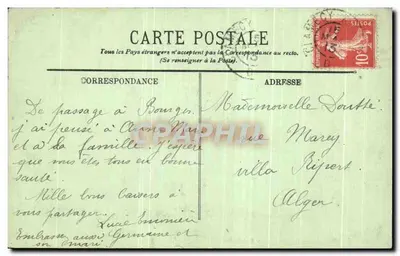 CARTE POSTALE
Tous les Pays étrangers n'acceptent pas la Correspondance au recto.
(Se renseigner à la Poste).
CORRESPONDANCE
De passage à Bourges
j'ai pensé à
et à la famille. J'espère
que vous êtes tous en bonne
santé.
Mille bons baisers à
vous partager.
Lucie
Embrasse aussi Germaine et
son mari
ADRESSE
Mademoiselle
rue Marey
villa Ripert
Alger
10
CARPHIL